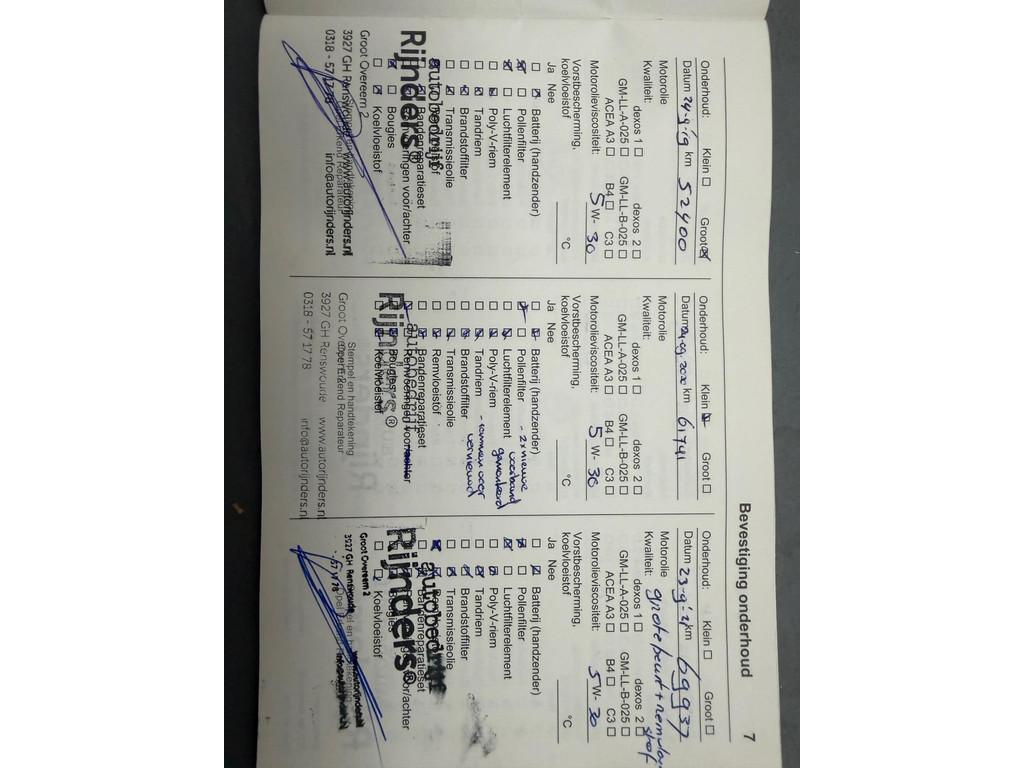 Bevestiging onderhoud
7
Onderhoud: Klein □ Groot ☒
Datum 24-9-'19 km 52400
Motorolie
Kwaliteit: dexos 1 □ dexos 2 □
GM-LL-A-025 □ GM-LL-B-025 □
ACEA A3 □ B4 □ C3 □
Motorolieviscositeit: 5 W- 30
Vorstbescherming,
koelvloeistof °C
Ja Nee
□ ☒ Batterij (handzender)
☒ □ Pollenfilter
☒ □ Luchtfilterelement
□ ☒ Poly-V-riem
□ ☒ Tandriem
□ ☒ Brandstoffilter
□ ☒ Transmissieolie
Bandenreparatieset
voor/achter
Bougies
□ ☒ Koelvloeistof
autobedrijf
Rijnders®
Groot Overeem 2
3927 GH Renswoude www.autorijnders.nl
0318 - 57 17 78 info@autorijnders.nl
Onderhoud: Klein ☒ Groot □
Datum km 61741
Motorolie
Kwaliteit: dexos 1 □ dexos 2 □
GM-LL-A-025 □ GM-LL-B-025 □
ACEA A3 □ B4 □ C3 □
Motorolieviscositeit: 5 W- 30
Vorstbescherming,
koelvloeistof °C
Ja Nee
□ ☒ Batterij (handzender)
☒ □ Pollenfilter - 2x nieuwe
□ ☒ Luchtfilterelement voorband
□ ☒ Poly-V-riem gemonteerd
□ ☒ Tandriem - remmen voor
□ ☒ Brandstoffilter vernieuwd
□ ☒ Transmissieolie
□ ☒ Remvloeistof
□ ☒ Bandenreparatieset
Remvoeringen voor/achter
Bougies
Koelvloeistof
autobedrijf
Rijnders®
Stempel en handtekening
Opel Erkend Reparateur
Groot Overeem 2
3927 GH Renswoude www.autorijnders.nl
0318 - 57 17 78 info@autorijnders.nl
Onderhoud: Klein □ Groot □
Datum 23-9-'21 km 69937
Motorolie grote beurt + remvloei
Kwaliteit: dexos 1 □ dexos 2 □ stof
GM-LL-A-025 □ GM-LL-B-025 □
ACEA A3 □ B4 □ C3 □
Motorolieviscositeit: 5 W- 30
Vorstbescherming,
koelvloeistof °C
Ja Nee
□ ☒ Batterij (handzender)
☒ □ Pollenfilter
☒ □ Luchtfilterelement
□ ☒ Poly-V-riem
□ ☒ Tandriem
□ ☒ Brandstoffilter
□ ☒ Transmissieolie
Bandenreparatieset
voor/achter
Bougies
Koelvloeistof
autobedrijf
Rijnders®
Groot Overeem 2
3927 GH Renswoude
57 17 78